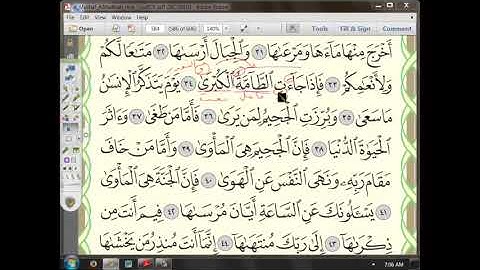 Tools
Fill & Sign
Comment
أَخْرَجَ مِنْهَا مَآءَهَا وَمَرْعَىٰهَا ٣١ وَٱلْجِبَالَ أَرْسَىٰهَا ٣٢ مَتَٰعًا لَّكُمْ
وَلِأَنْعَٰمِكُمْ ٣٣ فَإِذَا جَآءَتِ ٱلطَّآمَّةُ ٱلْكُبْرَىٰ ٣٤ يَوْمَ يَتَذَكَّرُ ٱلْإِنسَٰنُ
مَا سَعَىٰ ٣٥ وَبُرِّزَتِ ٱلْجَحِيمُ لِمَن يَرَىٰ ٣٦ فَأَمَّا مَن طَغَىٰ ٣٧ وَءَاثَرَ
ٱلْحَيَوٰةَ ٱلدُّنْيَا ٣٨ فَإِنَّ ٱلْجَحِيمَ هِىَ ٱلْمَأْوَىٰ ٣٩ وَأَمَّا مَنْ خَافَ
مَقَامَ رَبِّهِۦ وَنَهَى ٱلنَّفْسَ عَنِ ٱلْهَوَىٰ ٤٠ فَإِنَّ ٱلْجَنَّةَ هِىَ ٱلْمَأْوَىٰ
٤١ يَسْـَٔلُونَكَ عَنِ ٱلسَّاعَةِ أَيَّانَ مُرْسَىٰهَا ٤٢ فِيمَ أَنتَ مِن
ذِكْرَىٰهَآ ٤٣ إِلَىٰ رَبِّكَ مُنتَهَىٰهَآ ٤٤ إِنَّمَآ أَنتَ مُنذِرُ مَن يَخْشَىٰهَا
7:06 AM